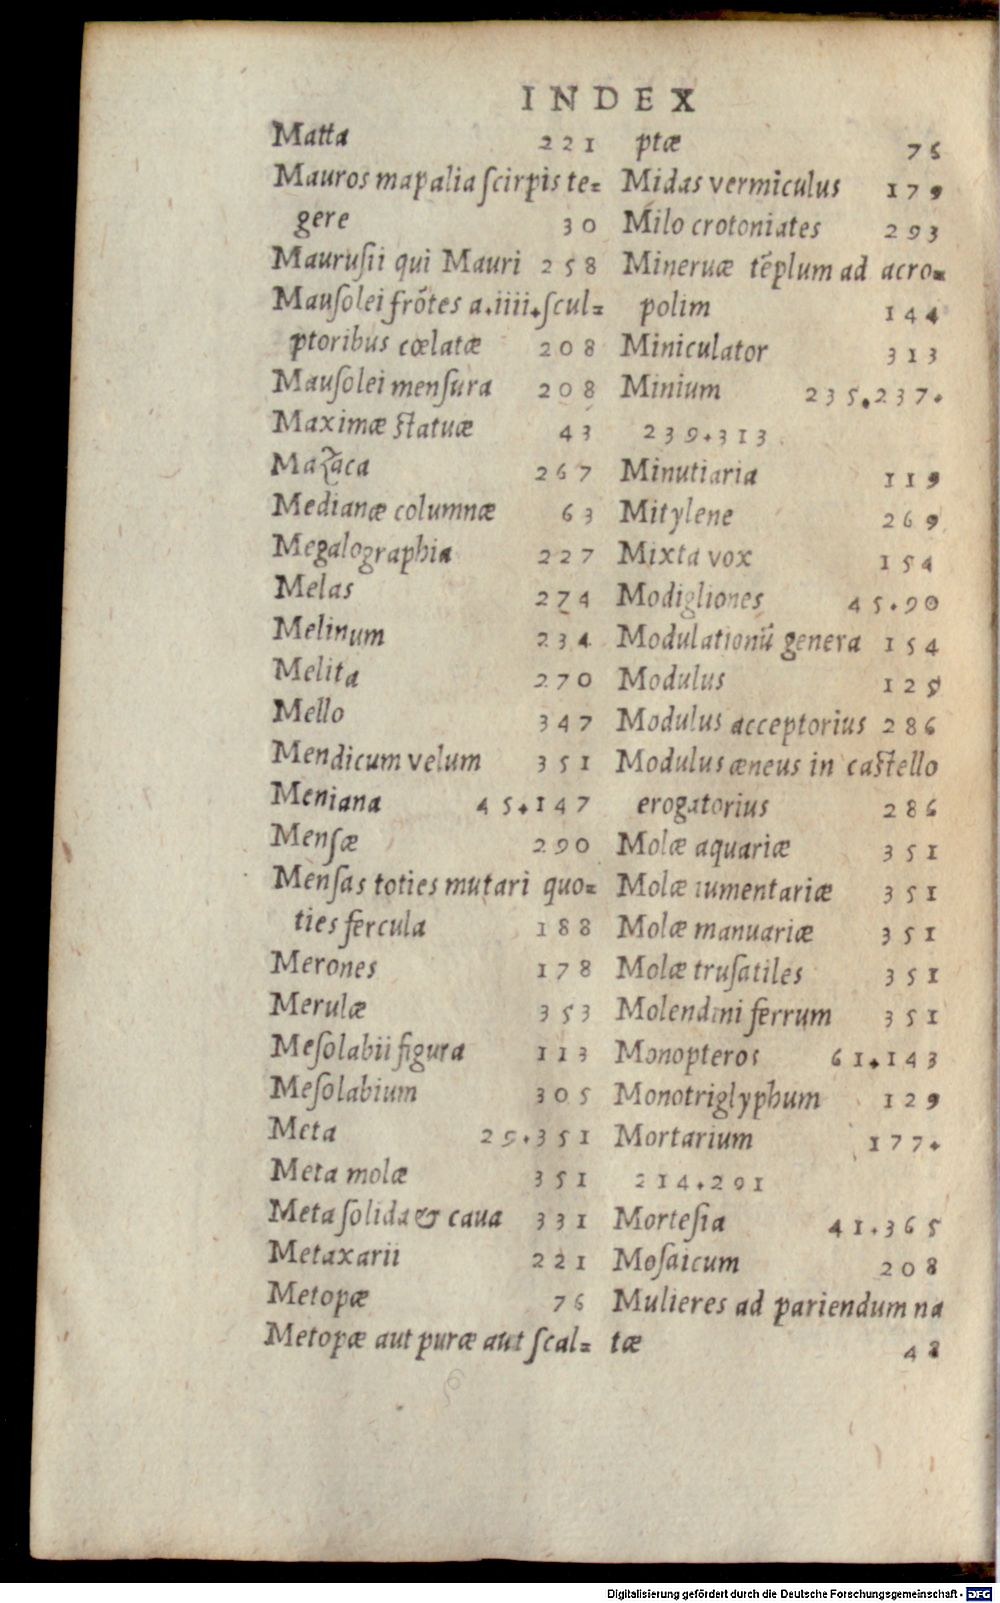 INDEX
Matta 221
Mauros mapalia ſcirpis te=
gere 30
Mauruſii qui Mauri 258
Mauſolei frōtes a.iiii.ſcul=
ptoribus cœlatæ 208
Mauſolei menſura 208
Maximæ ſtatuæ 43
Mazaca 267
Medianæ columnæ 63
Megalographia 227
Melas 274
Melinum 234
Melita 270
Mello 347
Mendicum velum 351
Meniana 45.147
Menſæ 290
Menſas toties mutari quo=
ties fercula 188
Merones 178
Merulæ 353
Meſolabii figura 113
Meſolabium 305
Meta 29.351
Meta molæ 351
Meta ſolida & caua 331
Metaxarii 221
Metopæ 76
Metopæ aut puræ aut ſcal=
ptæ 76
Midas vermiculus 179
Milo crotoniates 293
Mineruæ tēplum ad acro=
polim 144
Miniculator 313
Minium 235.237.
239.313
Minutiaria 119
Mitylene 269
Mixta vox 154
Modigliones 45.90
Modulationū genera 154
Modulus 125
Modulus acceptorius 286
Modulus æneus in caſtello
erogatorius 286
Molæ aquariæ 351
Molæ iumentariæ 351
Molæ manuariæ 351
Molæ truſatiles 351
Molendini ferrum 351
Monopteros 61.143
Monotriglyphum 129
Mortarium 177.
214.291
Morteſia 41.365
Moſaicum 208
Mulieres ad pariendum na
tæ 48
Digitalisierung gefördert durch die Deutsche Forschungsgemeinschaft - DFG